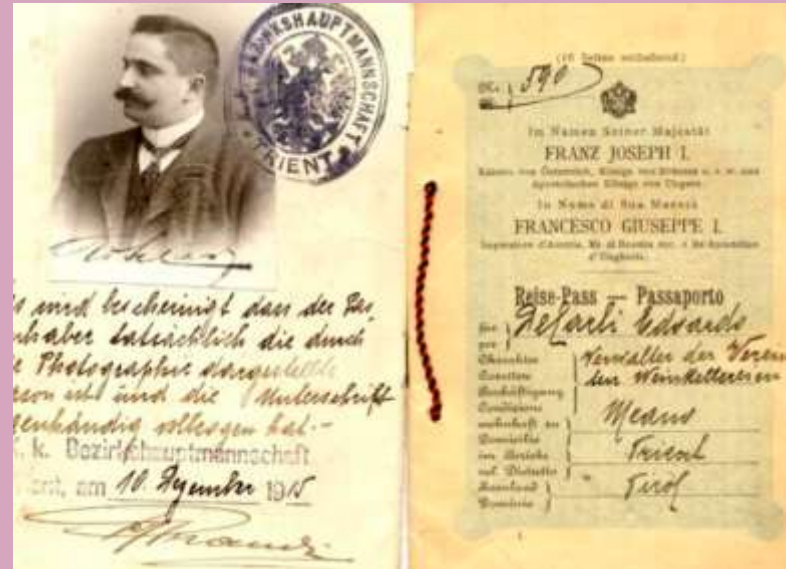 K. K. BEZIRKSHAUPTMANNSCHAFT
TRIENT
wird bescheinigt dass der
inhaber tatsächlich die durch
Photographie dargestellte
Person ist und die Unterschrift
genhändig vollzogen hat.-
k. k. Bezirkshauptmannschaft
am 10. Dezember 1915
(16 Seiten enthaltend)
No. 590
Im Namen Seiner Majestät
FRANZ JOSEPH I.
Kaisers von Österreich, Königs von Böhmen u. s. w. und
Apostolischen Königs von Ungarn.
In Nome di Sua Maestà
FRANCESCO GIUSEPPE I.
Imperatore d'Austria, Re di Boemia ecc. e Re Apostolico
d'Ungheria.
Reise-Pass — Passaporto
für Decarli Edoardo
per
Charakter Verwalter der Verein
Carattere ten Weinkellereien
Beschäftigung
Condizione
wohnhaft zu Meano
Domicilio
im Bezirke Trient
nel Distretto
Kronland Tirol
Dominio